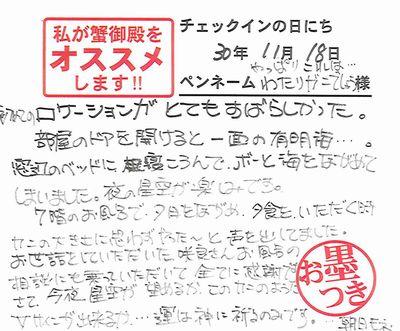 私が蟹御殿を
オススメ
します!!
チェックインの日にち
30年 11月 18日
やっぱりこれは…
ペンネーム わたりガニでしょう様
初めての ロケーションが とてもすばらしかった。
部屋のドアを開けると一面の有明海…。
窓辺のベッドに 寝ころんで、ボーと海をながめて
しまいました。夜の星空が楽しみです。
7階のお風呂で、夕日をながめ、夕食を、いただく時
カニの大きさに思わず やった〜と声を出してました。
お世話をしていただいた、咲良さん お風呂の
相談にも乗っていただいて 全てに感謝です
さて、今夜 星空が 望めるか、このカニのおみ
出来るか… 運は神に祈るのみです。… 朝日も
お墨
つき